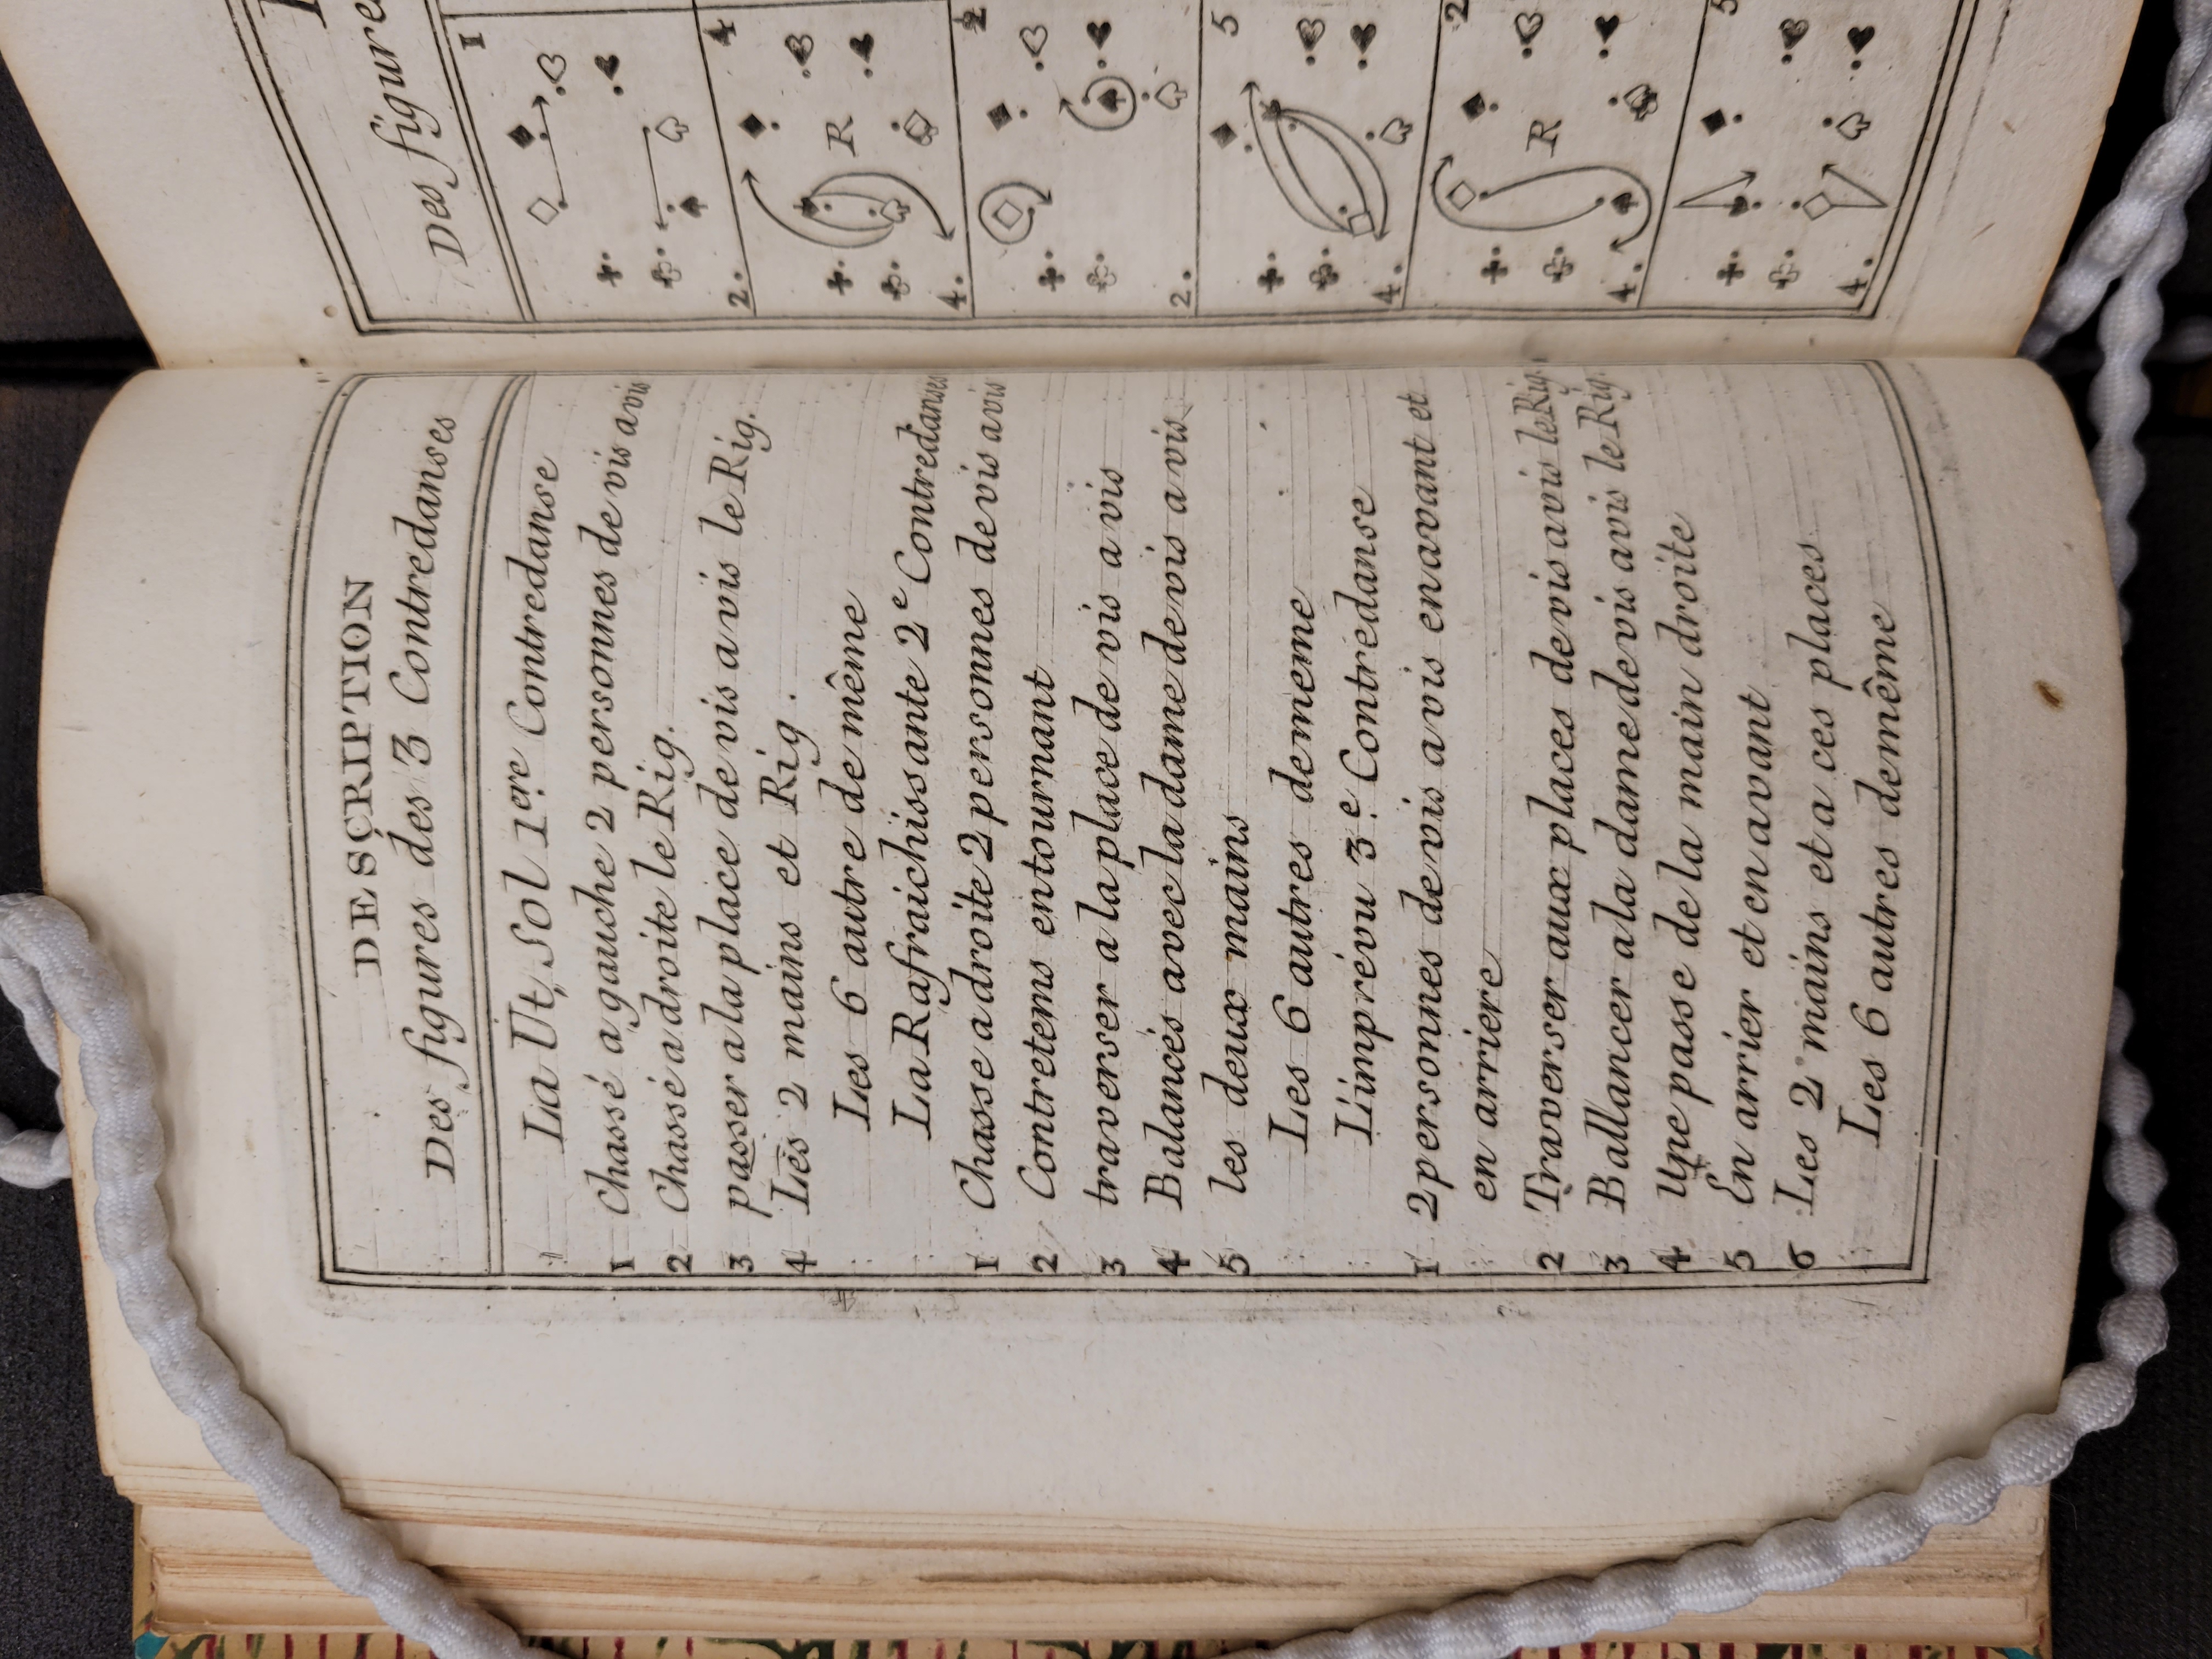 DESCRIPTION
Des figures des 3 Contredanses
La Ut, Sol 1ere Contredanse
1 Chassé a gauche 2 personnes de vis a vis
2 Chassé a droite le Rig.
3 passer a la place de vis a vis le Rig.
4 Les 2 mains et Rig.
Les 6 autre de même
La Rafraichissante 2e Contredanses
1 Chasse a droite 2 personnes de vis a vis
2 Contretems entournant
3 traverser a la place de vis a vis
4 Balancés avec la dame de vis a vis
5 les deux mains
Les 6 autres de meme
L'imprévu 3e Contredanse
1 2 personnes de vis a vis en avant et
en arriere
2 Traverser aux places de vis a vis le Rig.
3 Ballancer a la dame de vis a vis le Rig.
4 Une passe de la main droite
5 En arrier et en avant
6 Les 2 mains et a ces places
Les 6 autres demême
Des figure
1
2.
4
R
4.
2
2.
5
4.
2
R
4.
5
4.